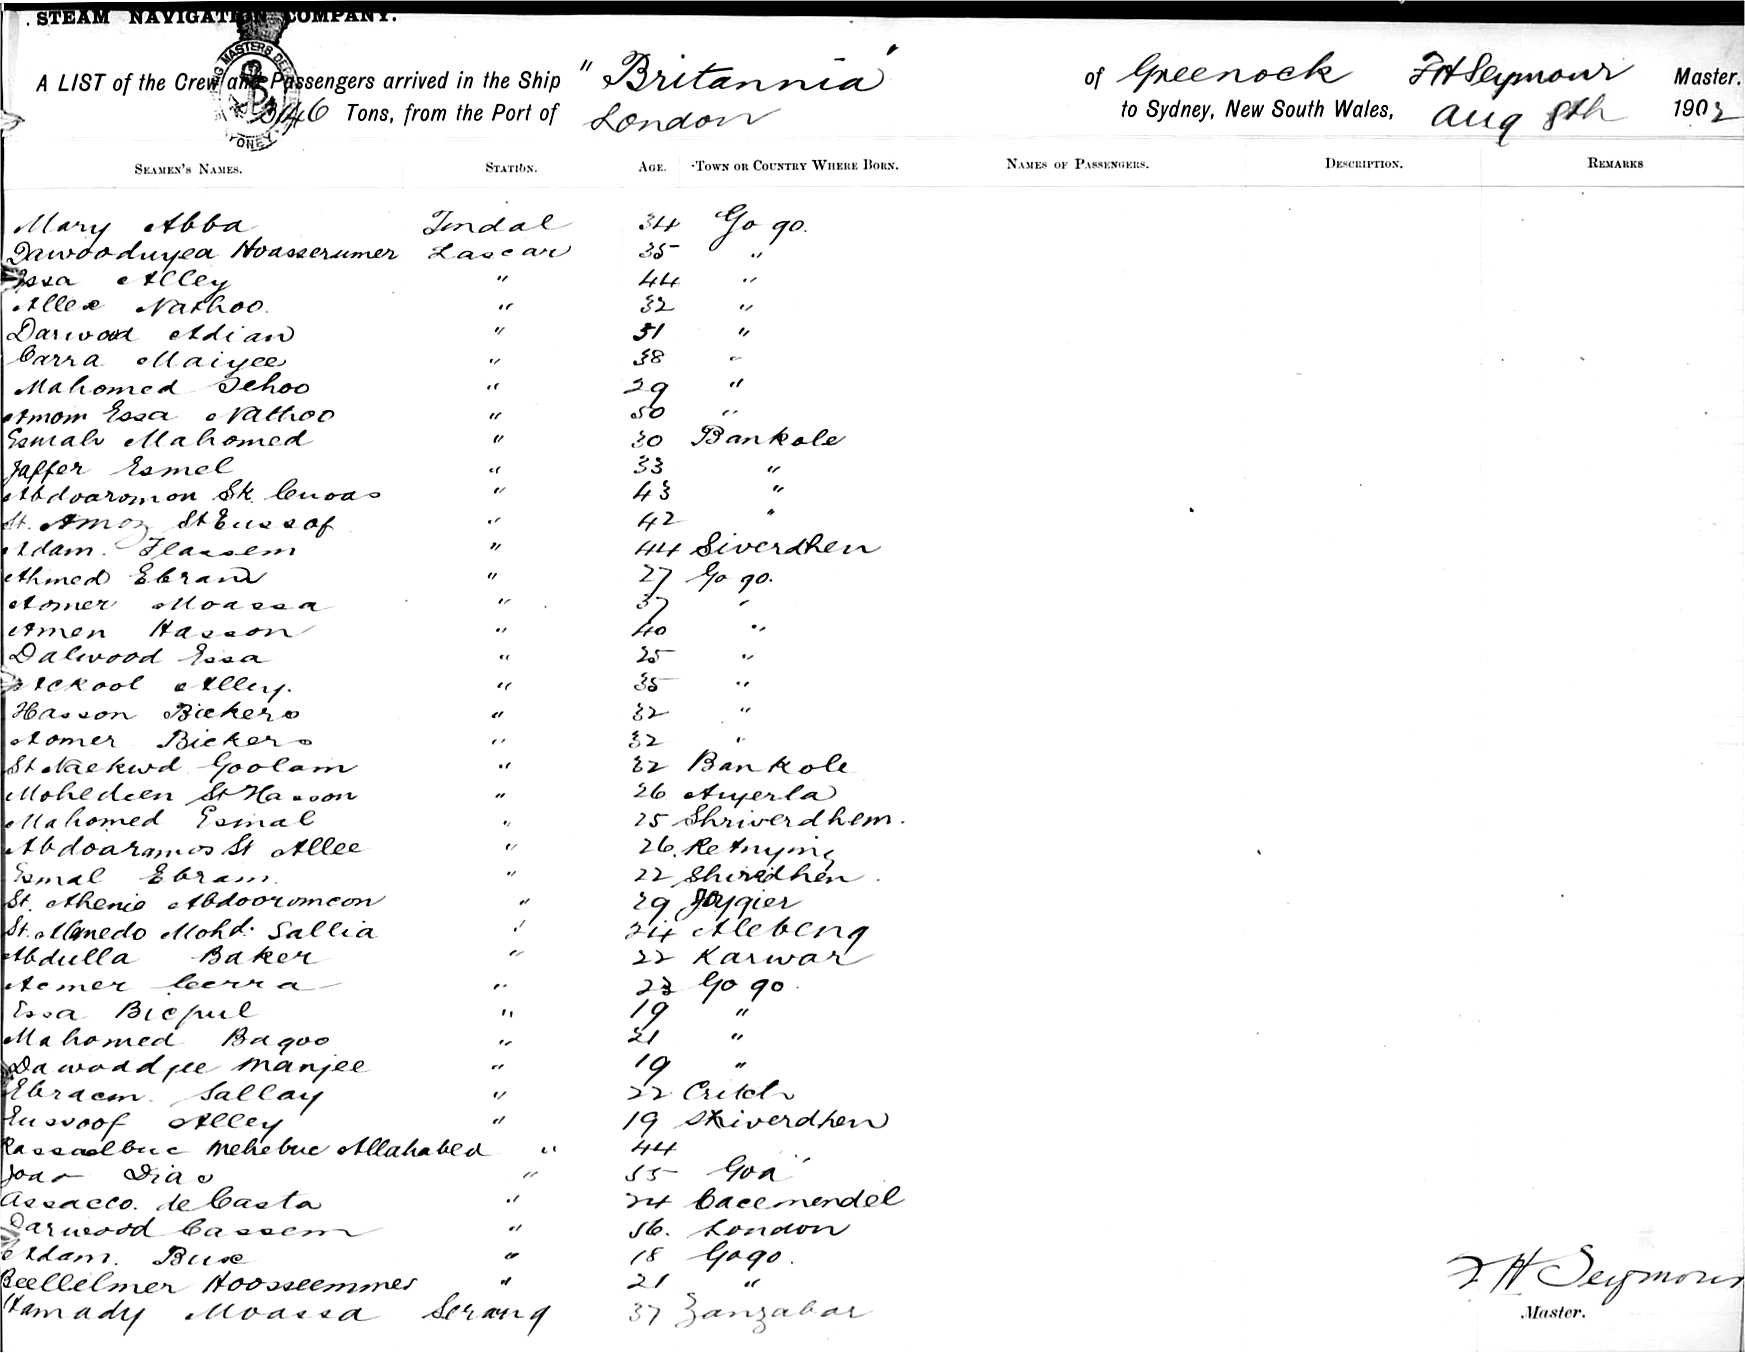 STEAM NAVIGATION COMPANY.
A LIST of the Crew and Passengers arrived in the Ship "Britannia" of Greenock F H Seymour Master.
Tons, from the Port of London to Sydney, New South Wales, Aug 8th 1902
SEAMEN'S NAMES. STATION. AGE. TOWN OR COUNTRY WHERE BORN. NAMES OF PASSENGERS. DESCRIPTION. REMARKS
Mary Abba Tindal 34 Go go.
Dawoodiyea Hoasserumer Lascar 35 "
Essa Alley " 44 "
Allee Nathoo. " 32 "
Darwood Adian " 51 "
Carra Maiyee " 38 "
Mahomed Jehoo " 29 "
Amom Essa Nathoo " 50 "
Esmah Mahomed " 30 Bankole
Jaffer Esmel " 33 "
Abdoaromon Sk. " 43 "
St. St Eussof " 42 "
Adam. Hassem " 44 Siverdhen
Ahmed Ebram " 27 Go go.
Aomer Moassa " 37 "
Amen Hasson " 40 "
Dalwood Essa " 25 "
Ackool Alley. " 35 "
Hasson Bickers " 32 "
Aomer Bickers " 32 "
St Goolam " 32 Bankole
Mohedeen St Hasson " 26
Mahomed Esmal " 25 Shriverdhem.
Abdoaramos St Allee " 26.
Esmal Ebram. " 22
St. Athenie Abdooromeon " 29
St. Mohd. Sallia " 24 Alebeng
Abdulla Baker " 22 Karwar
Aemer Cerra " 23 Go go.
Essa Biepul " 19 "
Mahomed Bagoo " 21 "
Dawoodjee Manjee " 19 "
Ebraem. Sallay " 22 Critch
Eussoof Alley " 19 Skiverdhen
Mehebuc Allahabed " 44 "
Joao Dias " 55 Goa
Assacco. de Casta " 24 Cacemendel
Darwood Cassem " 56. London
Adam. Buxe " 18 Gogo.
Beellelmer Hoosseemmer " 21 "
Hamady Moassa Serang 37 Zanzabar
F H Seymour
Master.